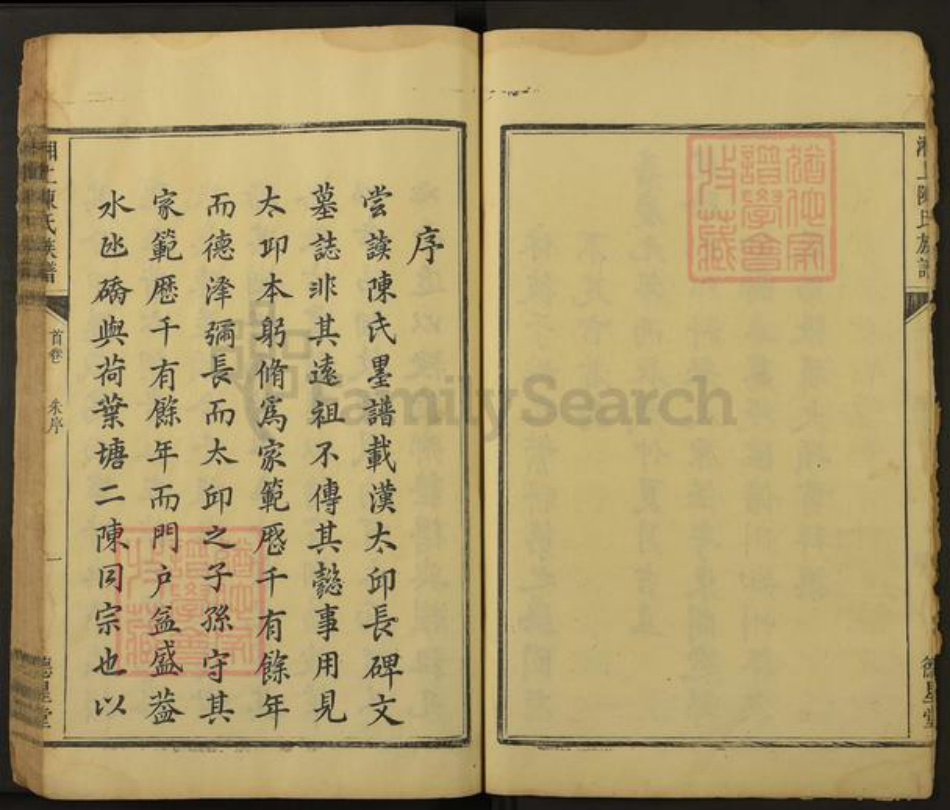 湘上陳氏族譜
猶他家
譜學會
收藏
序
嘗讀陳氏墨譜載漢太邱長碑文
墓誌非其遠祖不傳其懿事用見
太邱本躬脩為家範歷千有餘年
而德澤彌長而太邱之子孫守其
家範歷千有餘年而門户益盛葢
水氹礄與荷葉塘二陳同宗也以
湘上陳氏族譜
首卷
朱序
一
德星堂
德星堂
猶他家
譜學會
收藏
FamilySearch